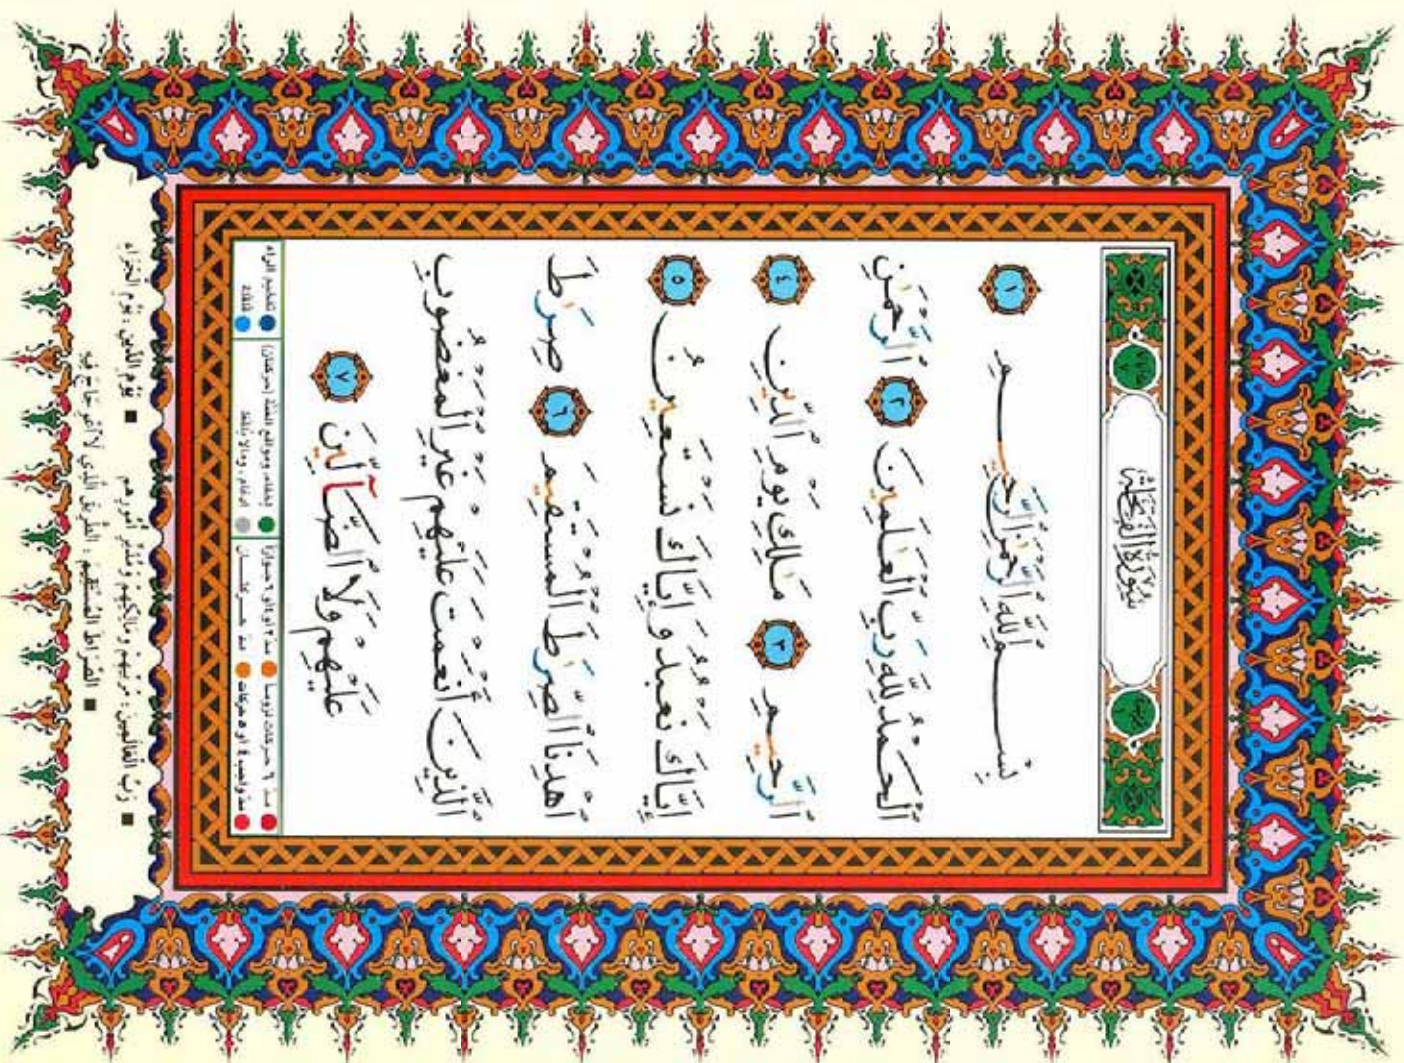 سُورَةُ الْفَاتِحَةِ
بِسْمِ ٱللَّهِ ٱلرَّحْمَٰنِ ٱلرَّحِيمِ ١
ٱلْحَمْدُ لِلَّهِ رَبِّ ٱلْعَٰلَمِينَ ٢ ٱلرَّحْمَٰنِ
ٱلرَّحِيمِ ٣ مَٰلِكِ يَوْمِ ٱلدِّينِ ٤
إِيَّاكَ نَعْبُدُ وَإِيَّاكَ نَسْتَعِينُ ٥
ٱهْدِنَا ٱلصِّرَٰطَ ٱلْمُسْتَقِيمَ ٦ صِرَٰطَ
ٱلَّذِينَ أَنْعَمْتَ عَلَيْهِمْ غَيْرِ ٱلْمَغْضُوبِ
عَلَيْهِمْ وَلَا ٱلضَّآلِّينَ ٧
مدّ ٦ حركات لزوماً مدّ ٢ أو ٤ أو ٦ جوازاً إخفاء، ومواقع الغنّة (حركتان) تفخيم الراء
مدّ واجب ٤ أو ٥ حركات مدّ حركتان إدغام، وما لا يُلفظ قلقلة
■ رَبِّ الْعَالَمِينَ : مُرَبِّيهِمْ وَمَالِكِهِمْ وَمُدَبِّرِ أُمُورِهِمْ ■ يَوْمِ الدِّينِ : يَوْمِ الْجَزَاءِ
■ الصِّرَاطَ الْمُسْتَقِيمَ : الطَّرِيقَ الَّذِي لَا اعْوِجَاجَ فِيهِ